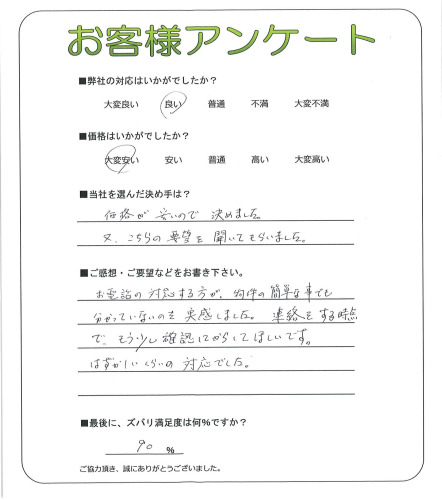 お客様アンケート
■弊社の対応はいかがでしたか？
大変良い 良い 普通 不満 大変不満
■価格はいかがでしたか？
大変安い 安い 普通 高い 大変高い
■当社を選んだ決め手は？
価格が安いので決めました。
又、こちらの要望を聞いてもらいました。
■ご感想・ご要望などをお書き下さい。
お電話の対応する方が、物件の簡単な事でも
分かっていないのを実感しました。連絡をする時点
で、もう少し確認してからしてほしいです。
はずかしいくらいの対応でした。
■最後に、ズバリ満足度は何%ですか？
90 %
ご協力頂き、誠にありがとうございました。